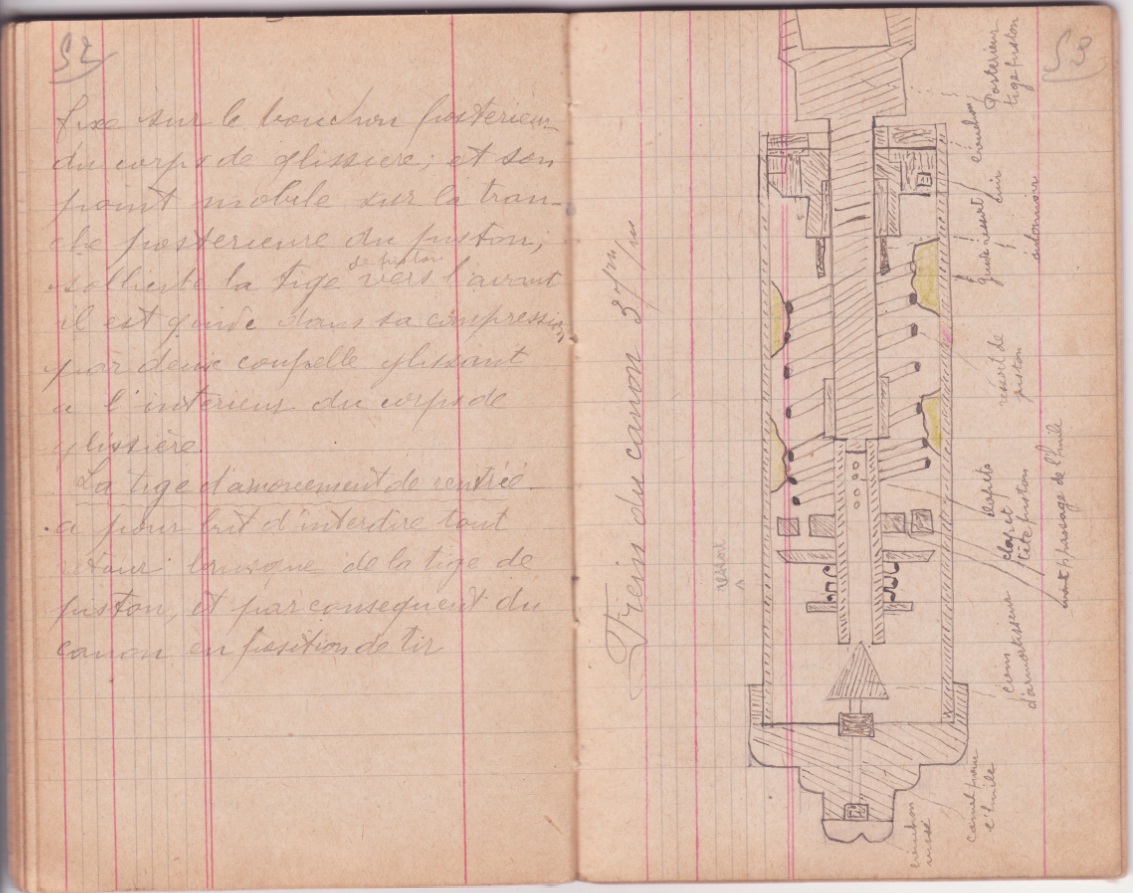 52
fixe sur le bouchon posterieur
du corps de glissière; et son
point mobile sur la tran-
che posterieure du piston,
sollicite la tige de piston vers l'avant
il est guidé dans sa compression
par deux coupelle glissant
a l'interieur du corps de
glissière.
La tige d'amorcement de rentrée
a pour but d'interdire tout
retour brusque de la tige de
piston, et par consequent du
canon en position de tir
50
Frein du canon 37 m/m
ressort
Posterieur
tige piston
bouchon
cuir
guide ressort
ressort de
piston
clapets
clapet
tête piston
passage de l'huile
d'amortisseur
canal pour
l'huile
bouchon
vissé